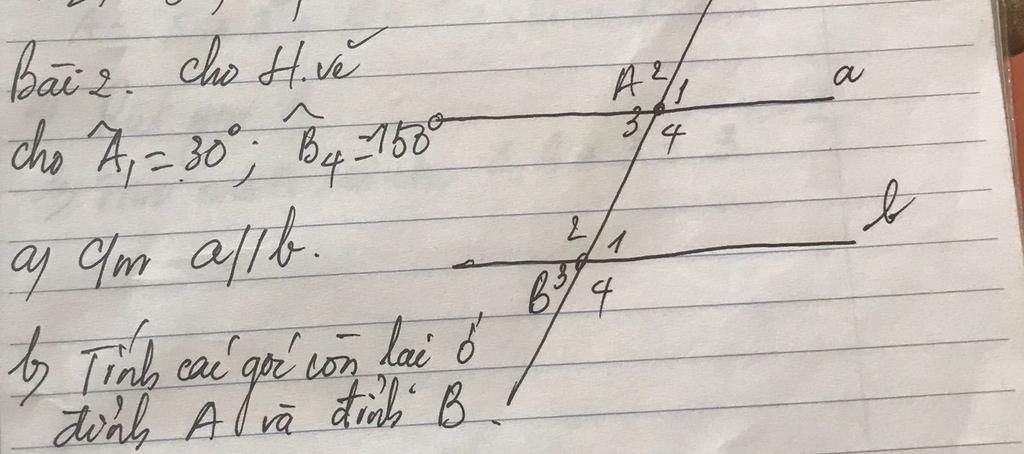 Bài 2. Cho H.vẽ
cho Â₁ = 30°; B̂₄ = 150°
a) C/m a//b.
b) Tính các góc còn lại ở
đỉnh A và đỉnh B.
A 2 1 a
3 4
2 1 b
B 3 4